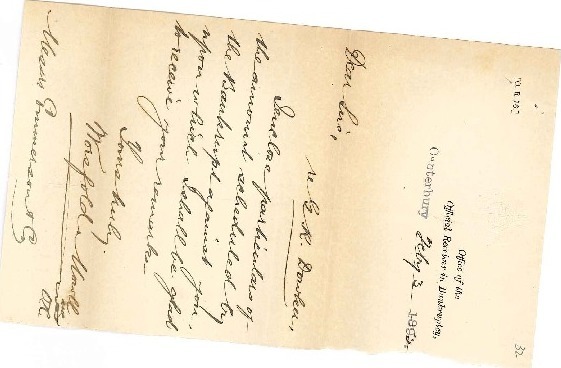 32
Office of the
Official Receiver in Bankruptcy,
Canterbury
Dear Sirs,
re G. R.
I enclose particulars of
the amount scheduled by
the Bankrupt against you,
upon which I shall be glad
to receive your remarks.
Yours truly,
Worsfold
OR
Messrs Emmerson & Co